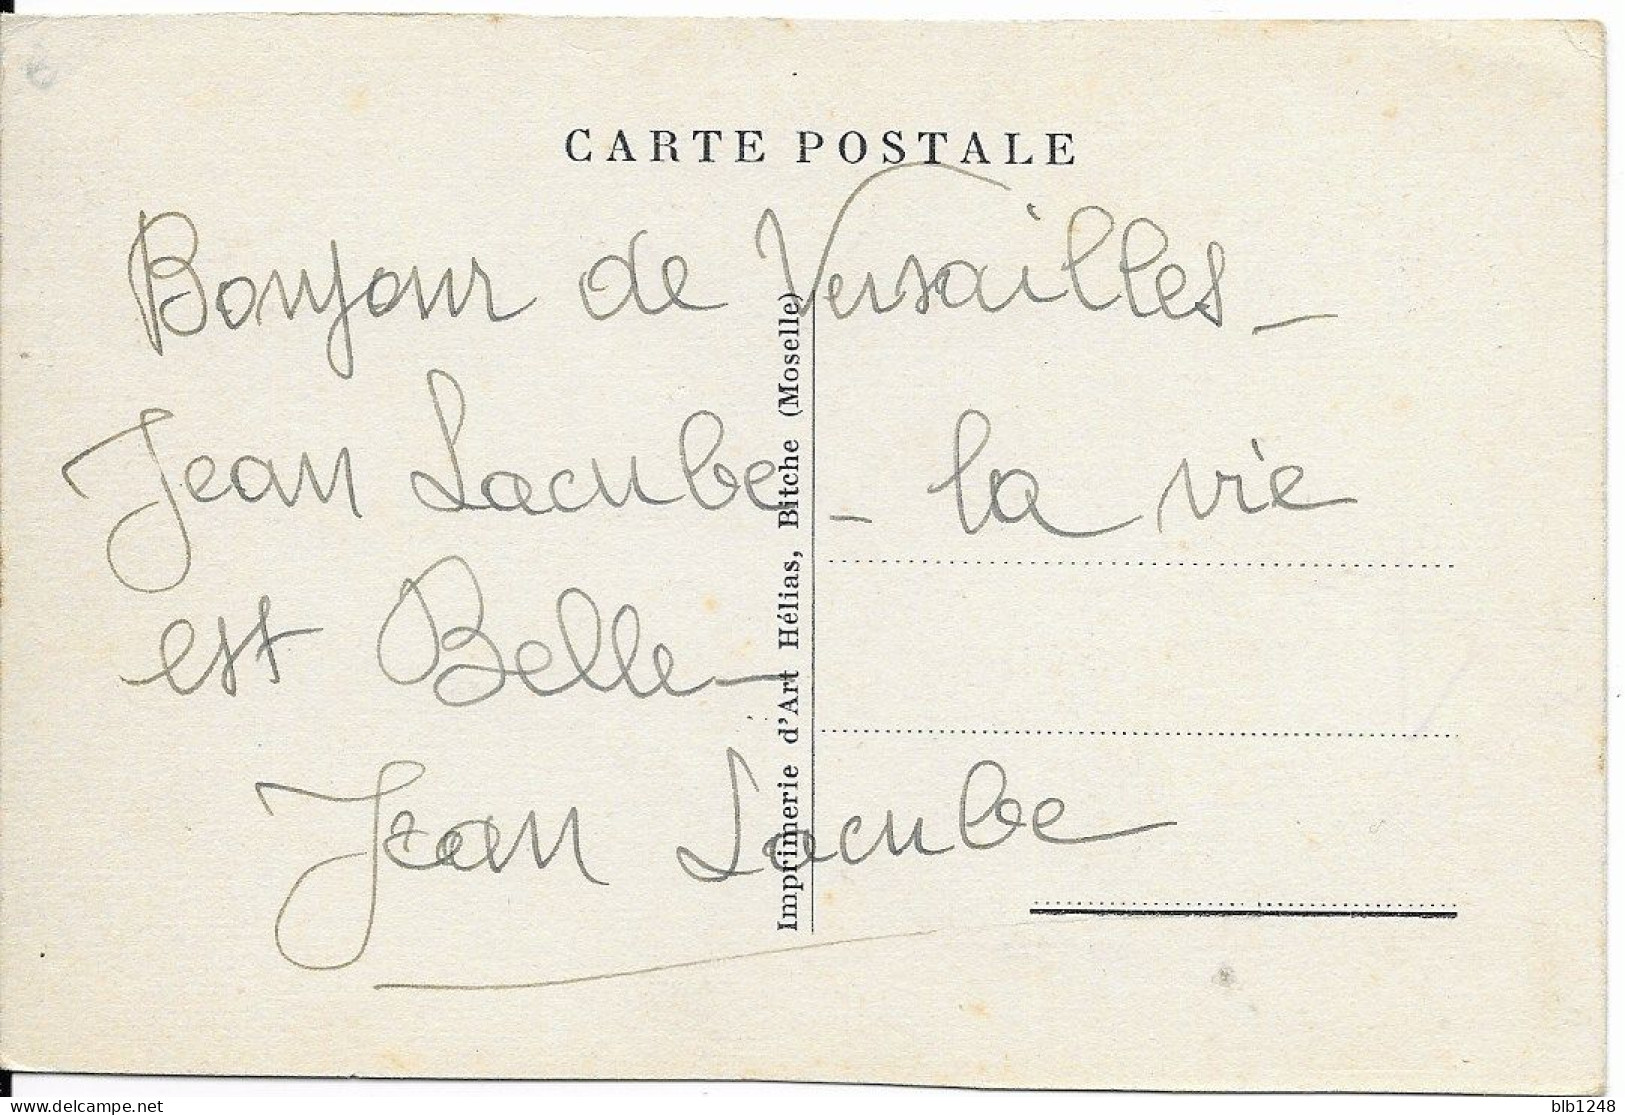 CARTE POSTALE
Bonjour de Versailles -
Jean Lacube - la vie
est Belle -
Jean Lacube
Imprimerie d'Art Hélias, Bitche (Moselle)
www.delcampe.net
blb1248